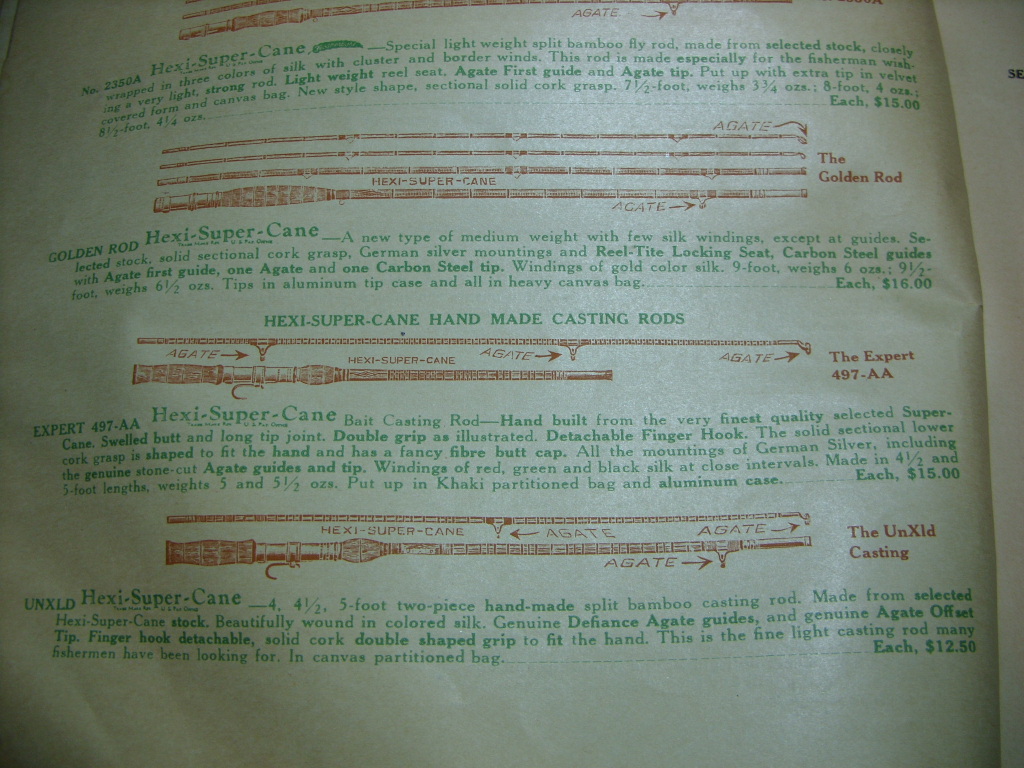 AGATE
No. 2350A Hexi-Super-Cane —Special light weight split bamboo fly rod, made from selected stock, closely
wrapped in three colors of silk with cluster and border winds. This rod is made especially for the fisherman wish-
ing a very light, strong rod. Light weight reel seat. Agate First guide and Agate tip. Put up with extra tip in velvet
covered form and canvas bag. New style shape, sectional solid cork grasp. 7½-foot, weighs 3¾ ozs.; 8-foot, 4 ozs.;
8½-foot, 4¼ ozs. Each, $15.00
AGATE
The
Golden Rod
HEXI-SUPER-CANE
AGATE
GOLDEN ROD Hexi-Super-Cane —A new type of medium weight with few silk windings, except at guides. Se-
lected stock, solid sectional cork grasp, German silver mountings and Reel-Tite Locking Seat, Carbon Steel guides
with Agate first guide, one Agate and one Carbon Steel tip. Windings of gold color silk. 9-foot, weighs 6 ozs.; 9½-
foot, weighs 6½ ozs. Tips in aluminum tip case and all in heavy canvas bag. Each, $16.00
HEXI-SUPER-CANE HAND MADE CASTING RODS
AGATE HEXI-SUPER-CANE AGATE AGATE
The Expert
497-AA
EXPERT 497-AA Hexi-Super-Cane Bait Casting Rod—Hand built from the very finest quality selected Super-
Cane. Swelled butt and long tip joint. Double grip as illustrated. Detachable Finger Hook. The solid sectional lower
cork grasp is shaped to fit the hand and has a fancy fibre butt cap. All the mountings of German Silver, including
the genuine stone-cut Agate guides and tip. Windings of red, green and black silk at close intervals. Made in 4½ and
5-foot lengths, weights 5 and 5½ ozs. Put up in Khaki partitioned bag and aluminum case. Each, $15.00
HEXI-SUPER-CANE AGATE AGATE
The UnXld
Casting
AGATE
UNXLD Hexi-Super-Cane —4, 4½, 5-foot two-piece hand-made split bamboo casting rod. Made from selected
Hexi-Super-Cane stock. Beautifully wound in colored silk. Genuine Defiance Agate guides, and genuine Agate Offset
Tip. Finger hook detachable, solid cork double shaped grip to fit the hand. This is the fine light casting rod many
fishermen have been looking for. In canvas partitioned bag. Each, $12.50